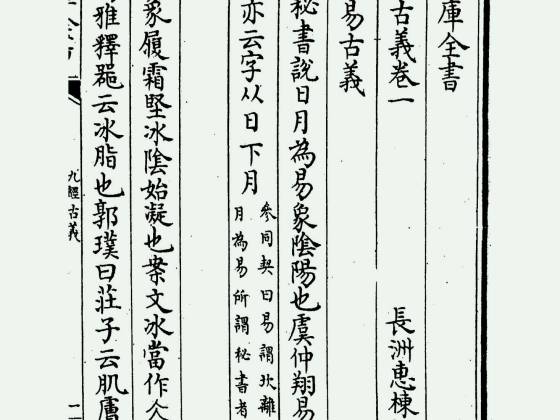 庫全書
古義卷一
長洲惠棟
易古義
秘書說日月為易象陰陽也虞仲翔易
亦云字从日下月
參同契曰易謂坎離
月為易所謂秘書者
象履霜堅冰陰始凝也案文冰當作仌
雅釋器云冰脂也郭璞曰莊子云肌膚
九經古義